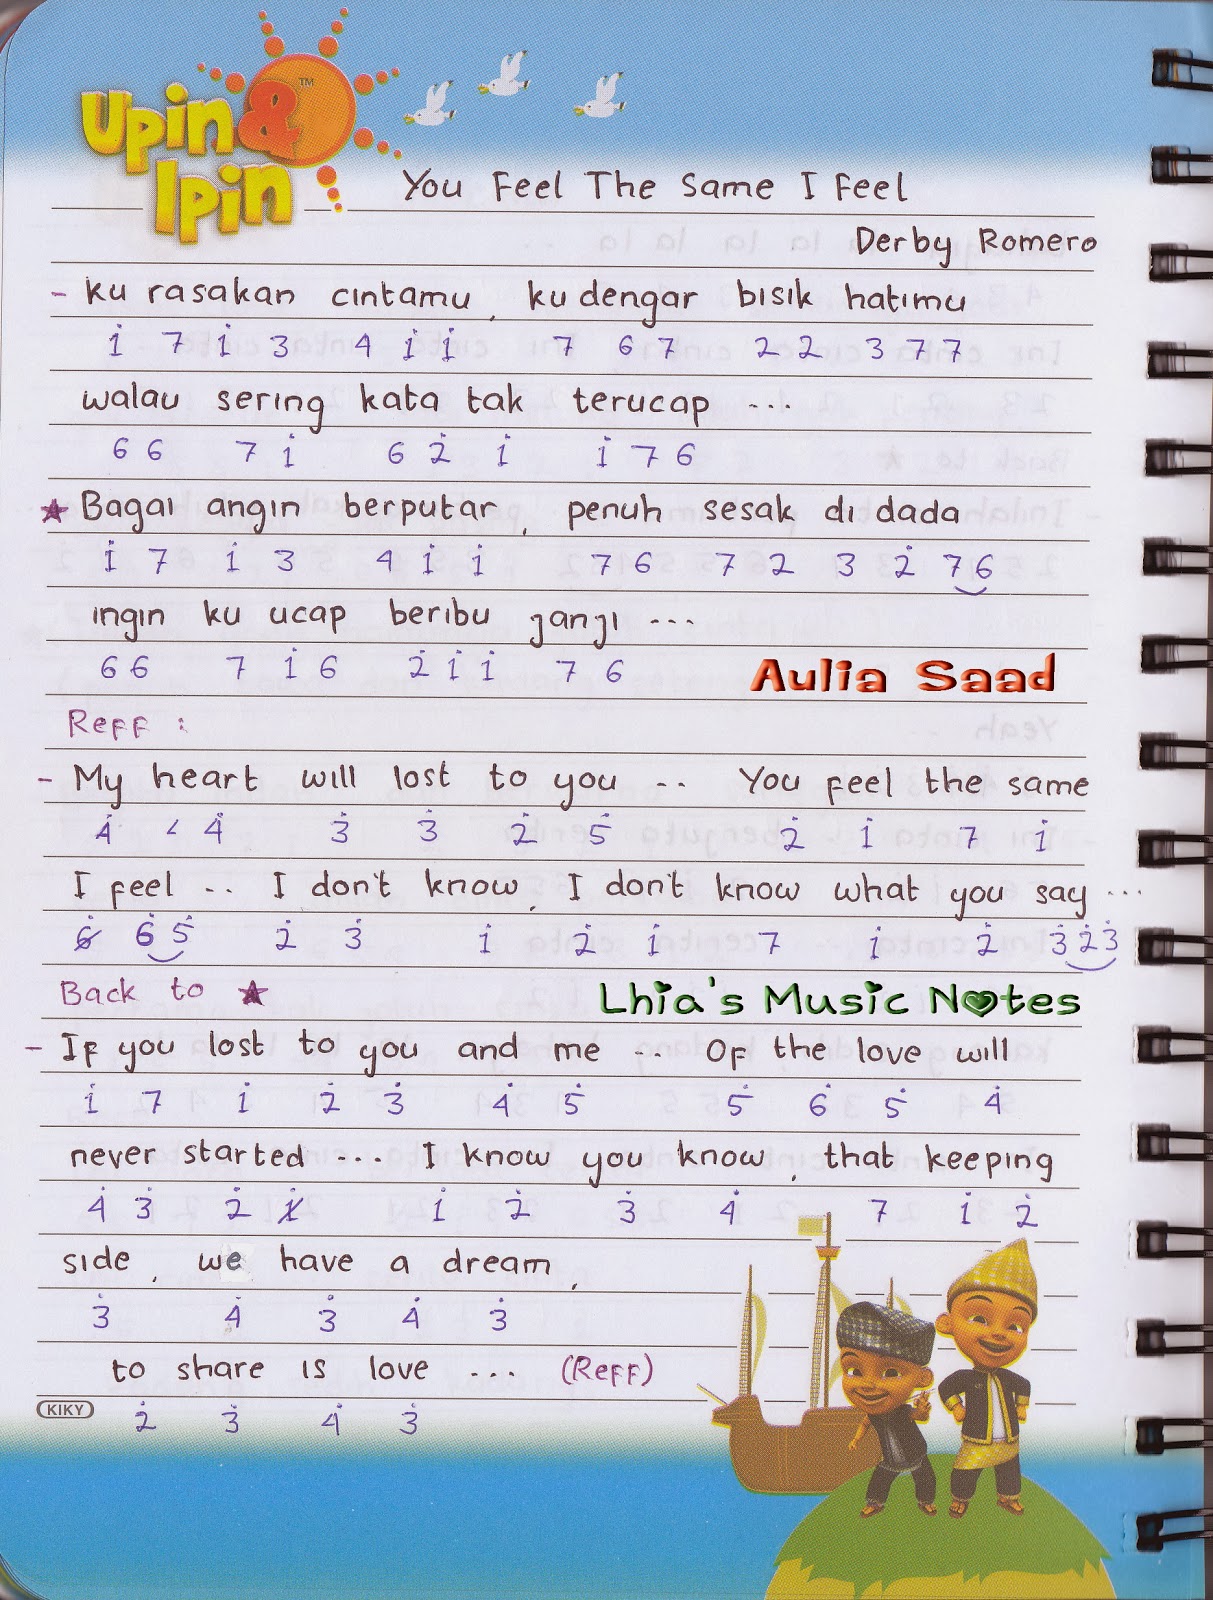 Upin & Ipin ™
You Feel The Same I Feel
Derby Romero
- ku rasakan cintamu, ku dengar bisik hatimu
i̇ 7 i̇ 3 4 i̇ i̇ 7 6 7 2 2 3 7 7
walau sering kata tak terucap ...
6 6 7 i̇ 6 2̇ i̇ i̇ 7 6
★ Bagai angin berputar, penuh sesak di dada
i̇ 7 i̇ 3 4 i̇ i̇ 7 6 7 2 3 2̇ 7 6
ingin ku ucap beribu janji ...
6 6 7 i̇ 6 2̇ i̇ i̇ 7 6
Aulia Saad
Reff :
- My heart will lost to you .. You feel the same
4̇ 4̇ 3̇ 3̇ 2̇ 5̇ 2̇ i̇ 7 i̇
I feel .. I don't know, I don't know what you say ...
6̇ 6̇ 5̇ 2̇ 3̇ i̇ 2̇ i̇ 7 i̇ 2̇ 3̇ 2̇ 3̇
Back to ★
Lhia's Music Notes
- If you lost to you and me ... Of the love will
i̇ 7 i̇ 2̇ 3̇ 4̇ 5̇ 5̇ 6̇ 5̇ 4̇
never started ... I know you know, that keeping
4̇ 3̇ 2̇ i̇ i̇ 2̇ 3̇ 4̇ 7 i̇ 2̇
side, we have a dream,
3̇ 4̇ 3̇ 4̇ 3̇
to share is love ... (Reff)
KIKY
2̇ 3̇ 4̇ 3̇